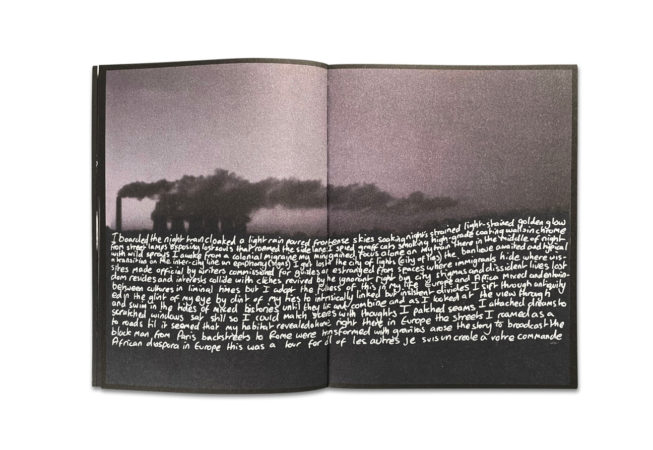 I boarded the night train cloaked a light rain poured from skies soaking nights strained light-stained golden glow
from street lamps exposing lost souls that roamed the side lane I spied graff cats smoking high-grade coating walls in chrome
with wild sprays I awoke from a colonial migraine my mind gained focus alone on my train there in the middle of night
in transition on the inter-city line an epiphany (signs) I get lost the city of lights (city of the banlieue awaited and typical
sites made official by writers commissioned for guides are estranged from spaces where immigrants hide where wis-
dom resides and interests collide with cliches revived by the ignorant right big city enigmas and dissident lives lost
between cultures in liminal times but I adopt the of this in my life Europe and Africa mixed and entwin-
ed in the glint of my eye by dint of my ties to intrinsically linked but insistent divides I sift through antiquity
and swim in the tides of mixed histories until they lie and combine and as I looked at the view through
scratched windows sat still so I could match streets with thoughts I patched seams I attached dreams to
to roads til it seemed that my habitat revealed a home right there in Europe the streets I roamed as a
black man from Paris backstreets to Rome were transformed with arose the story to broadcast the
African diaspora in Europe this was a tour for all of les autres je suis un creole a votre commande